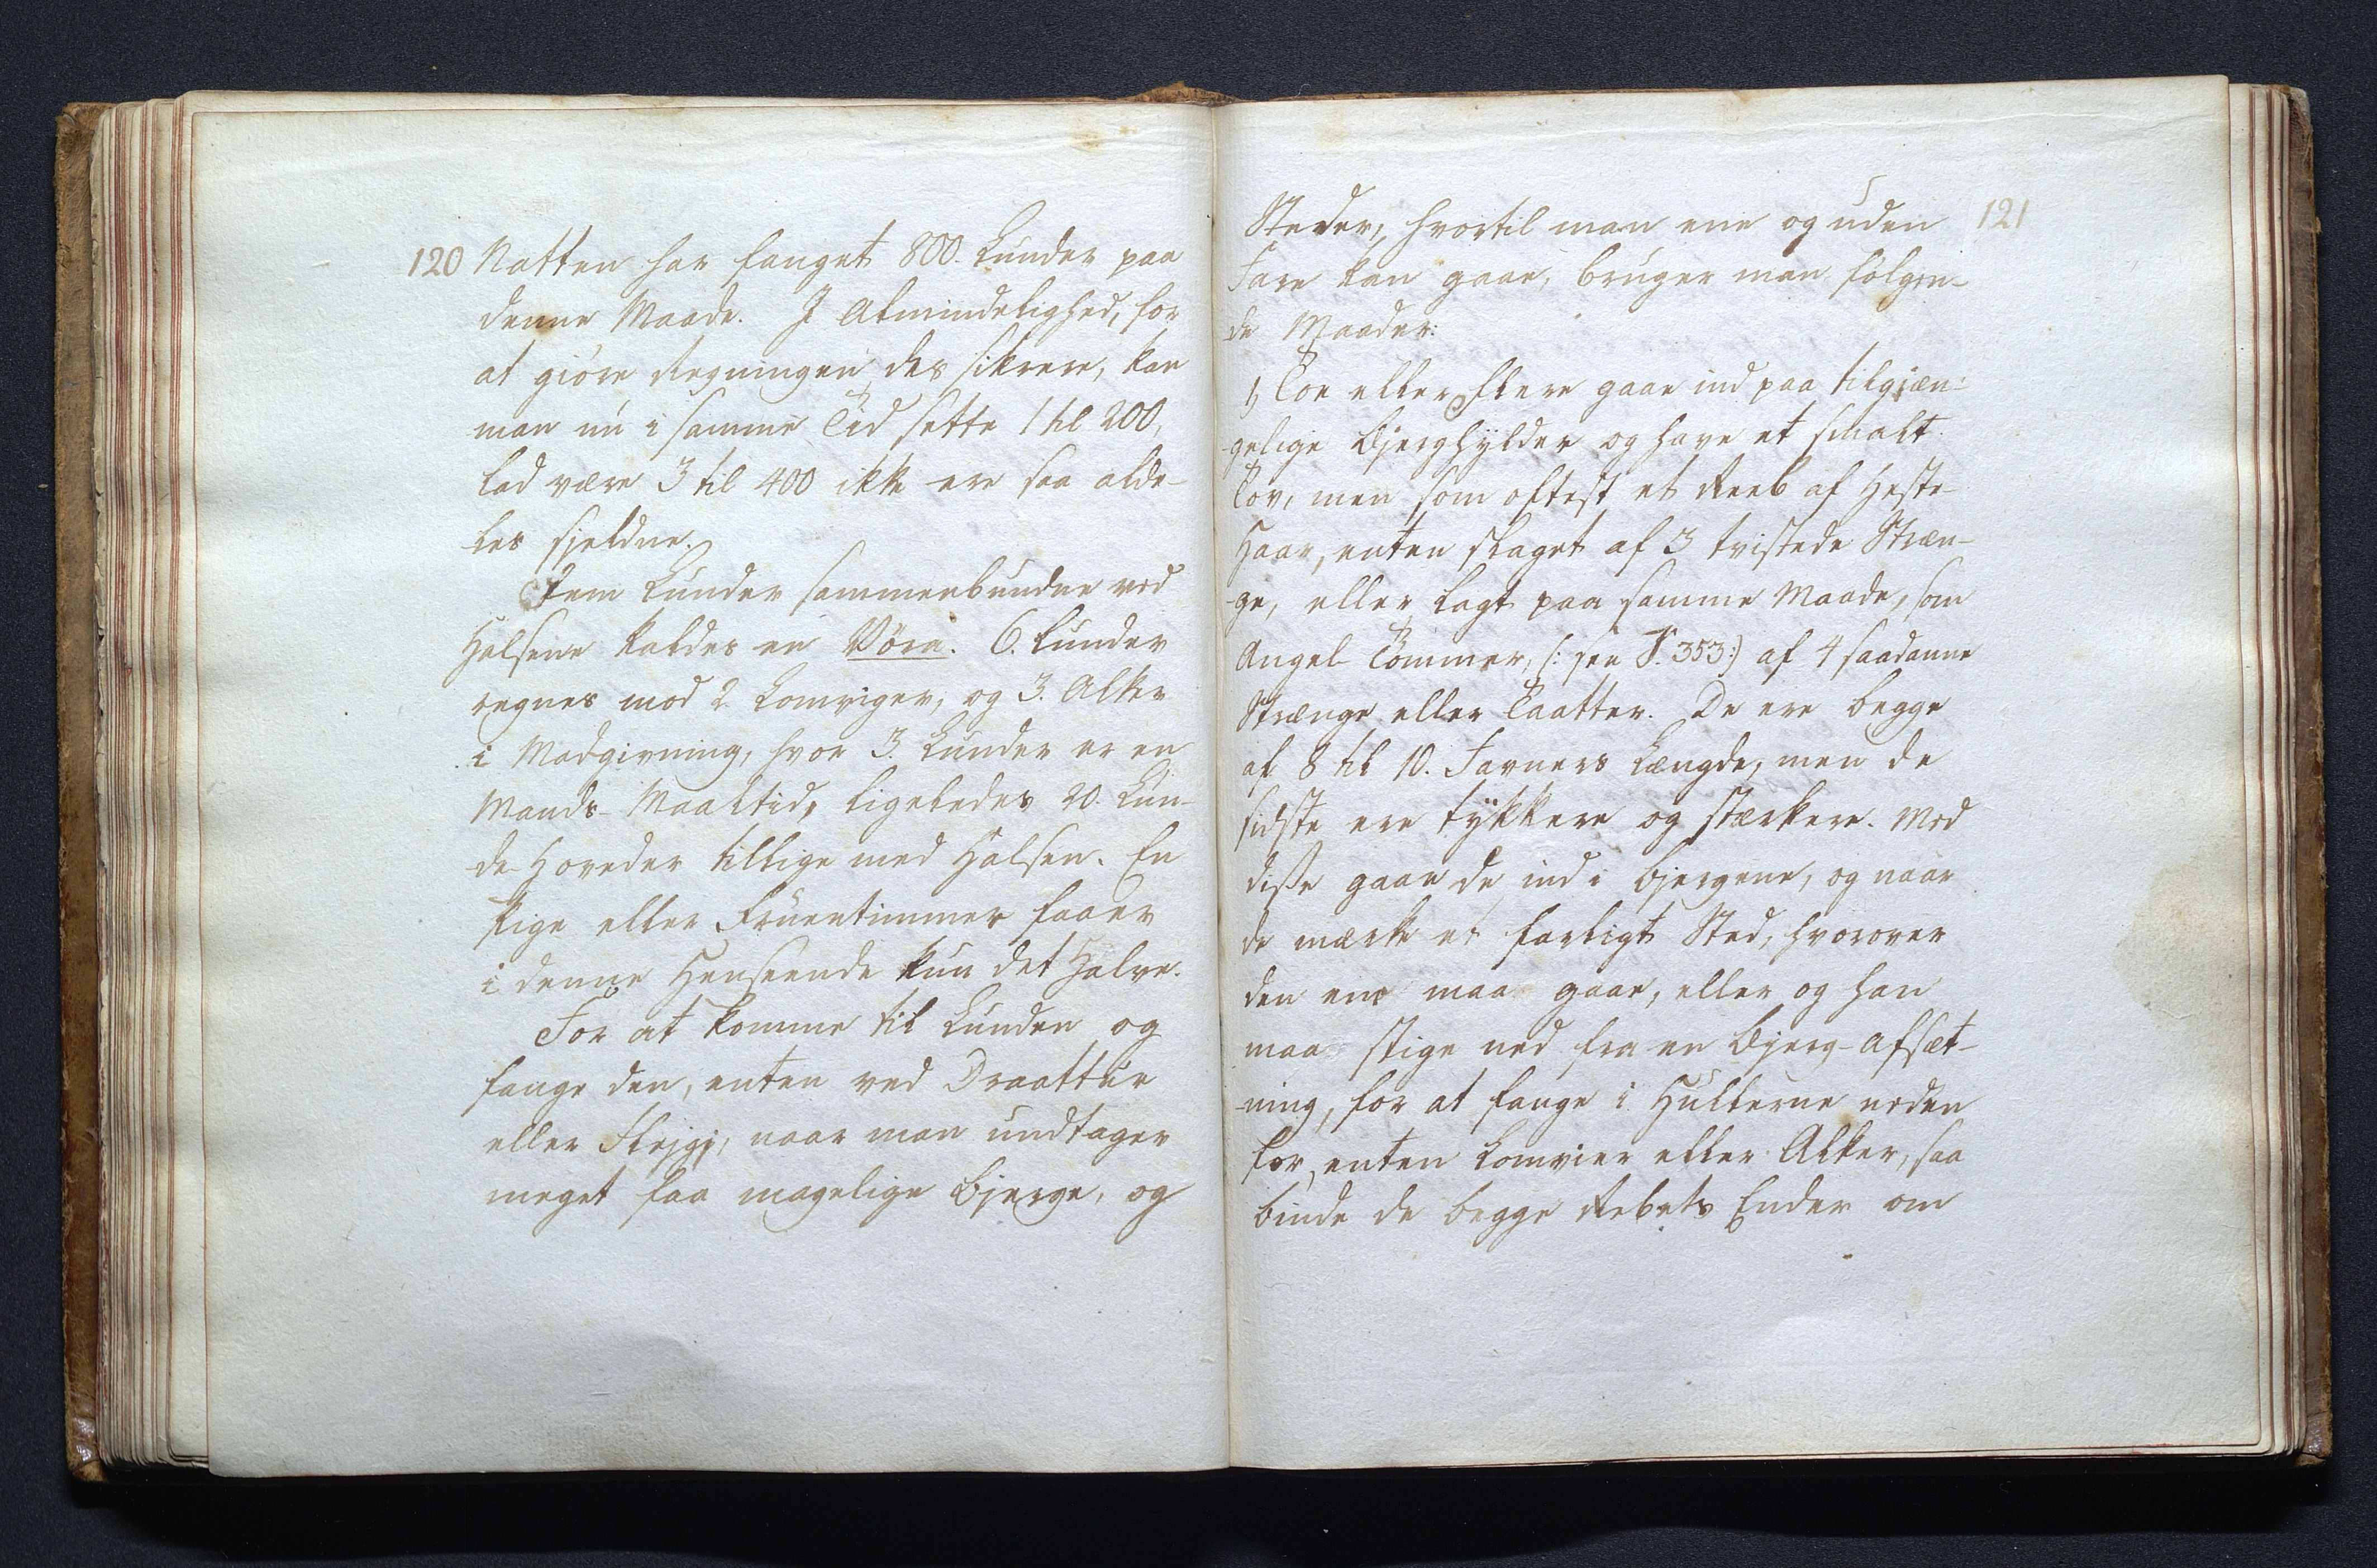 120 Natten har fanget 800. Lunder paa
denne Maade. I Almindelighed, for
at giöre Regningen des sikrere, kan
man nu i samme Tid sette 1 til 200,
lad være 3 til 400 ikke ere saa alde-
les sjeldne.
Fem Lunder sammenbundne ved
Halsene kaldes en Vöra. 6. Lunder
regnes mod 2. Lomviger, og 3. Alker
i Madgivning, hvor 3. Lunder er en
Mands-Maaltid, ligeledes 20. Lun-
de-Hoveder tillige med Halsen. En
Pige eller Fruentimmer faaer
i denne Henseende kun det Halve.
For at komme til Lunden og
fange den, enten ved Draattur
eller Flejgj, naar man undtager
meget faa magelige Bjerge, og
121
Steder, hvortil man ene og uden
Fare kan gaae, bruger man fölgen-
de Maader:
1) Toe eller flere gaae ind paa tilgjæn-
gelige Bjerghylder og have et smalt
Tov, men som oftest et Reeb af Heste-
Haar, enten slaget af 3 tvistede Stræn-
ge, eller lagt paa samme Maade, som
Angel-Tömmer, (: see §. 353:) af 4 saadanne
Strænge eller Taatter. De ere begge
af 8 til 10. Favners Længde, men de
sidste ere tykkere og stærkere. Med
disse gaae de ind i Bjergene, og naar
de mærke et farligt Sted, hvorover
den ene maa gaae, eller og han
maa stige ned fra en Bjerg-Afsæt-
ning, for at fange i Hullerne neden
for, enten Lomvier eller Alker, saa
binde de begge Rebets Ender om